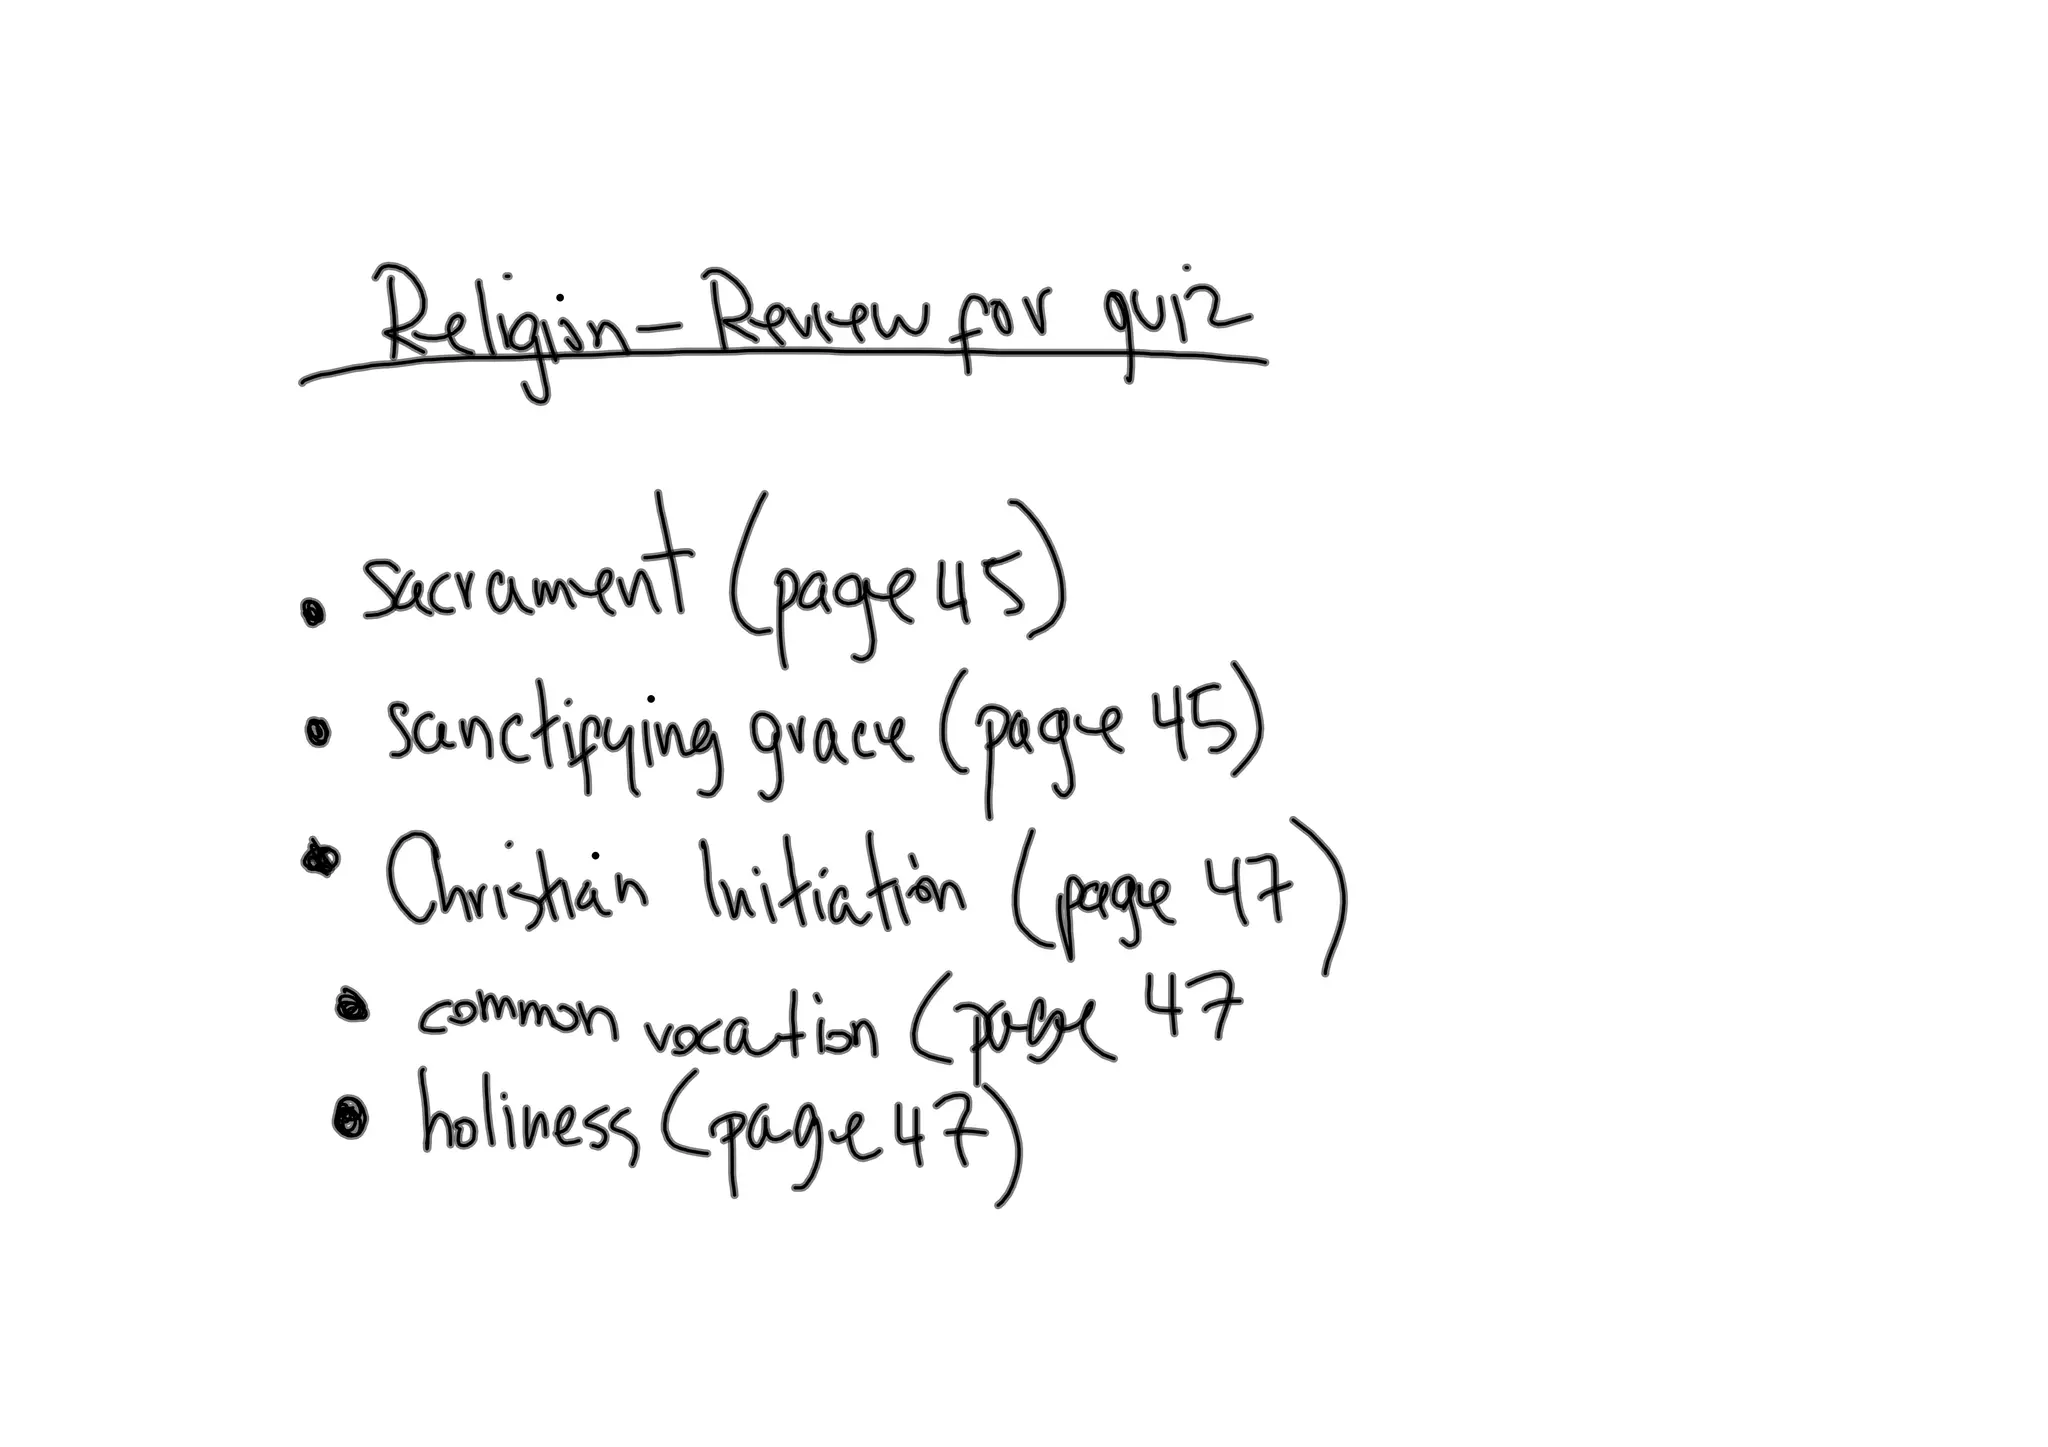 Religion - Review for quiz
• sacrament (page 45)
• sanctifying grace (page 45)
• Christian Initiation (page 47)
• common vocation (page 47
• holiness (page 47)